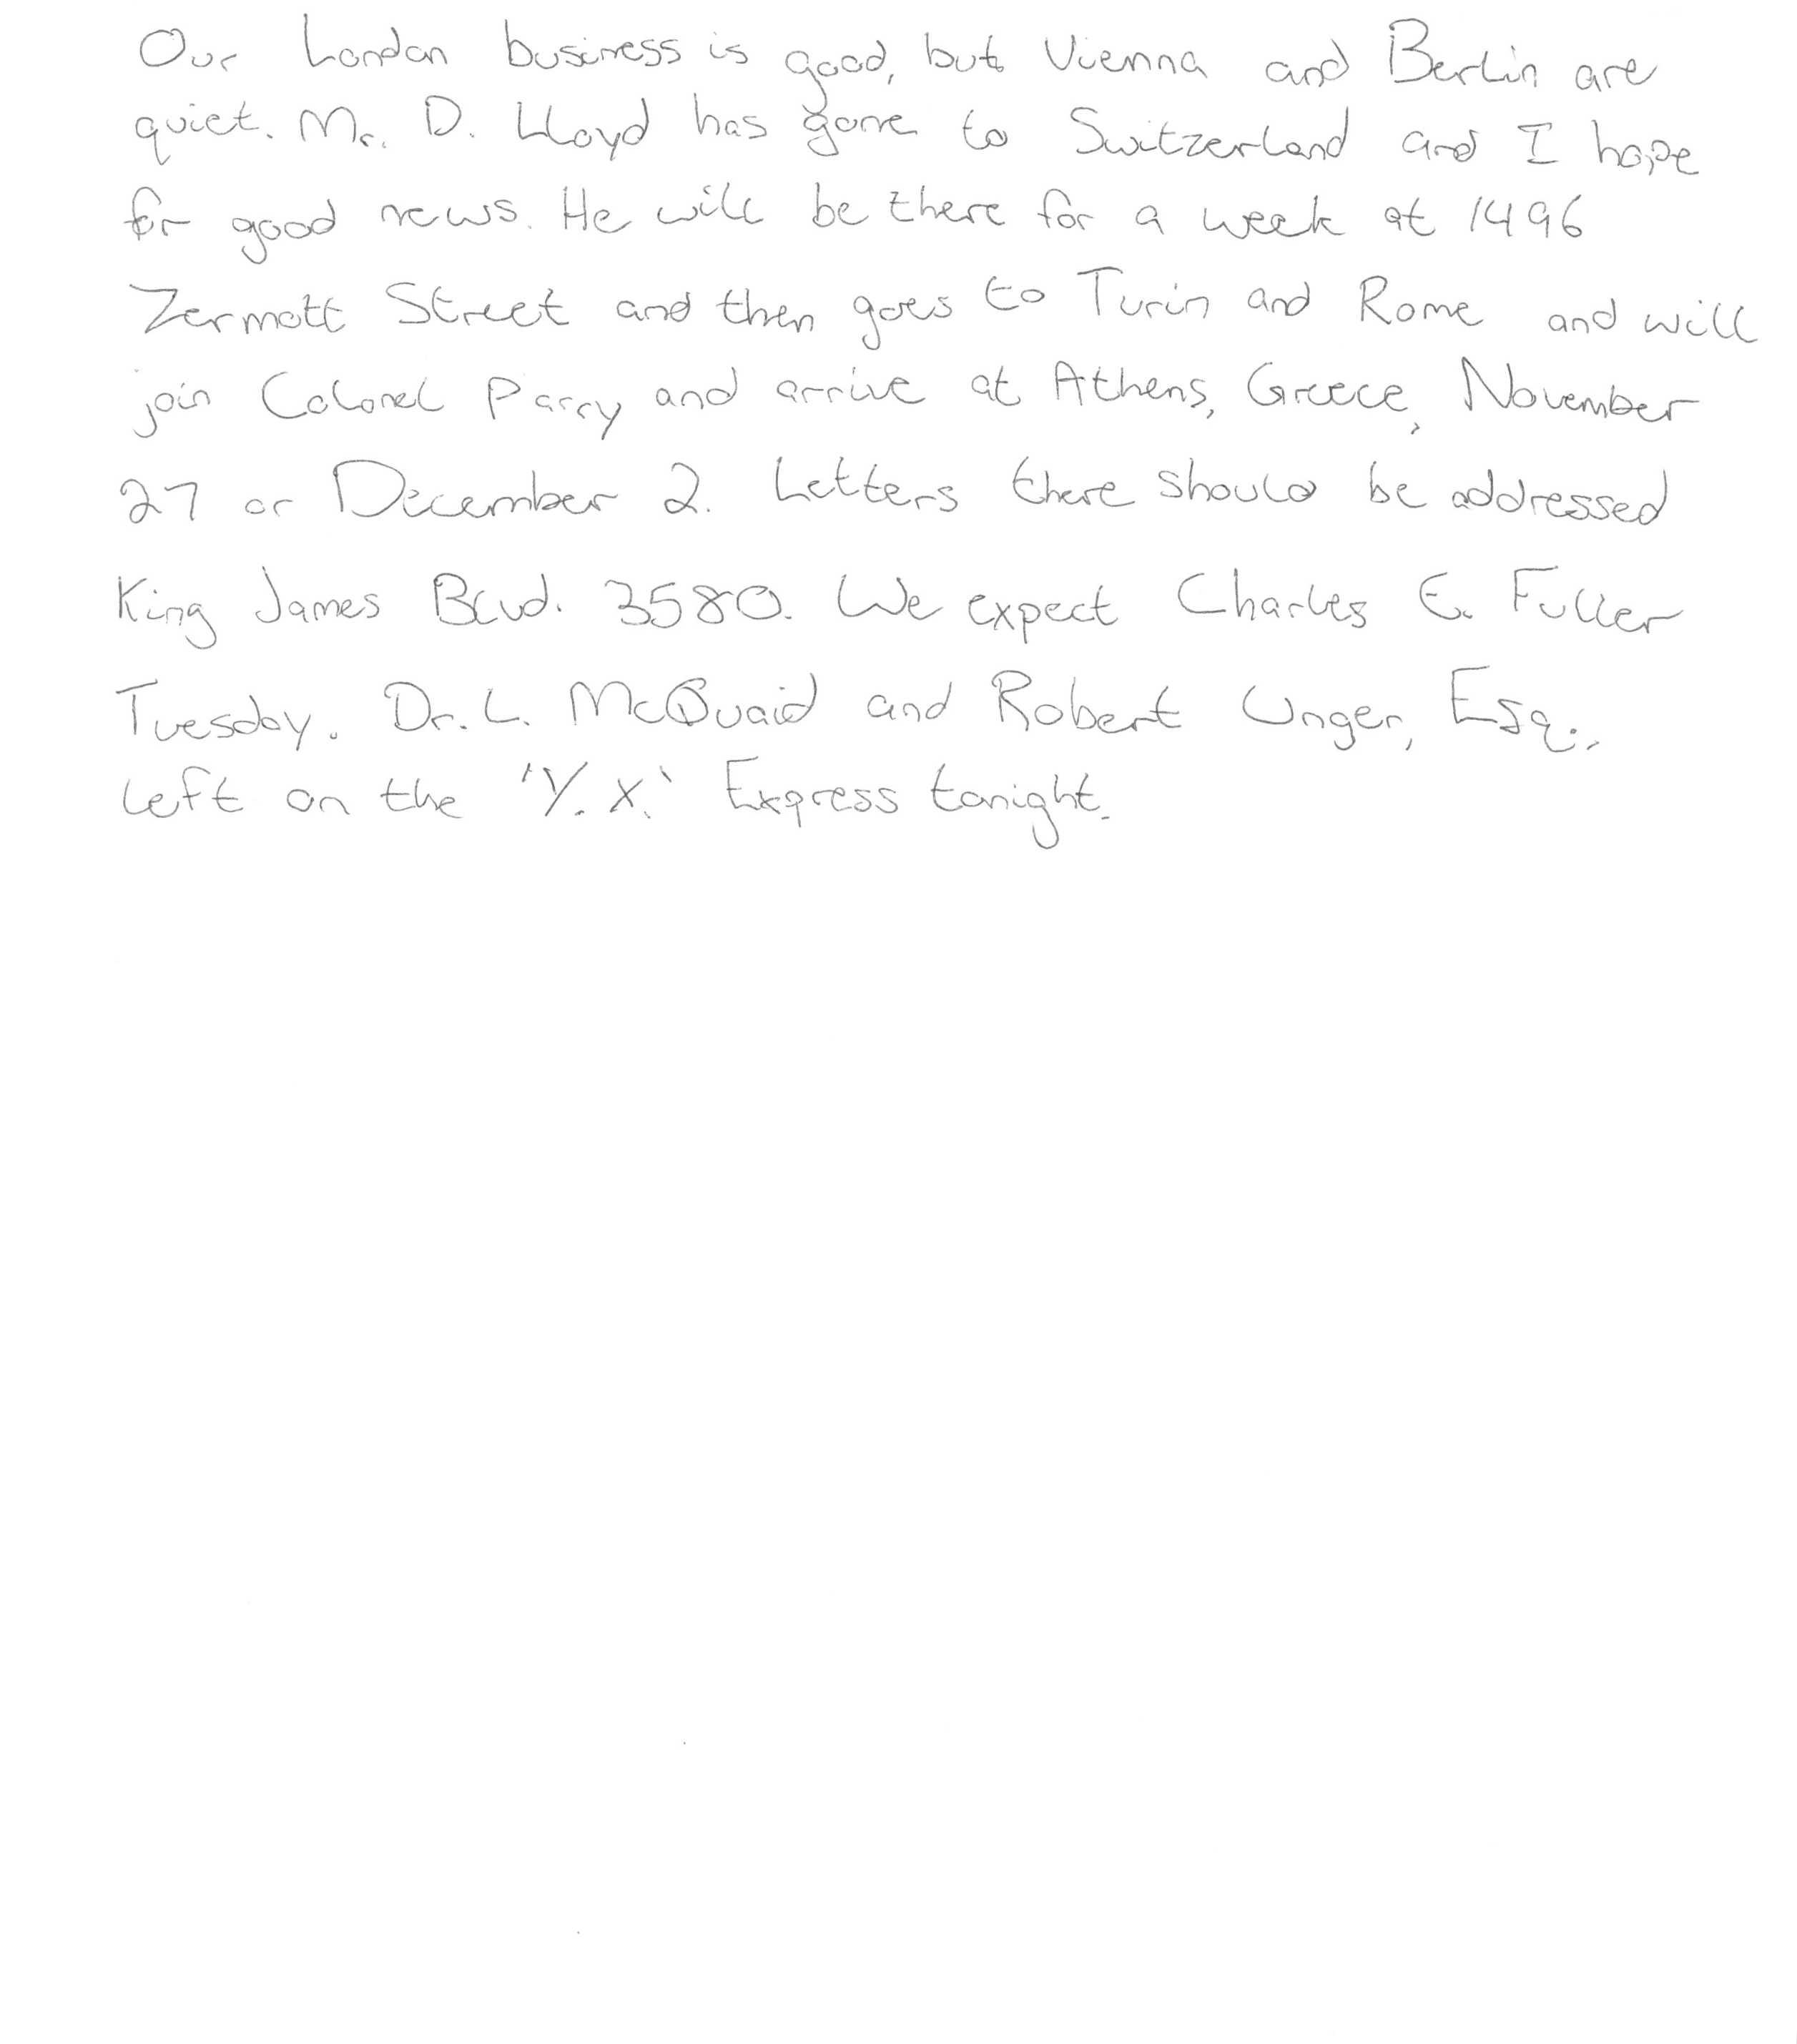 Our London business is good, but Vienna and Berlin are
quiet. Mr. D. Lloyd has gone to Switzerland and I hope
for good news. He will be there for a week at 1496
Zermott Street and then goes to Turin and Rome and will
join Colonel Parry and arrive at Athens, Greece, November
27 or December 2. Letters there should be addressed
King James Blvd. 3580. We expect Charles E. Fuller
Tuesday. Dr. L. McQuaid and Robert Unger, Esq.,
left on the 'Y. X.' Express tonight.